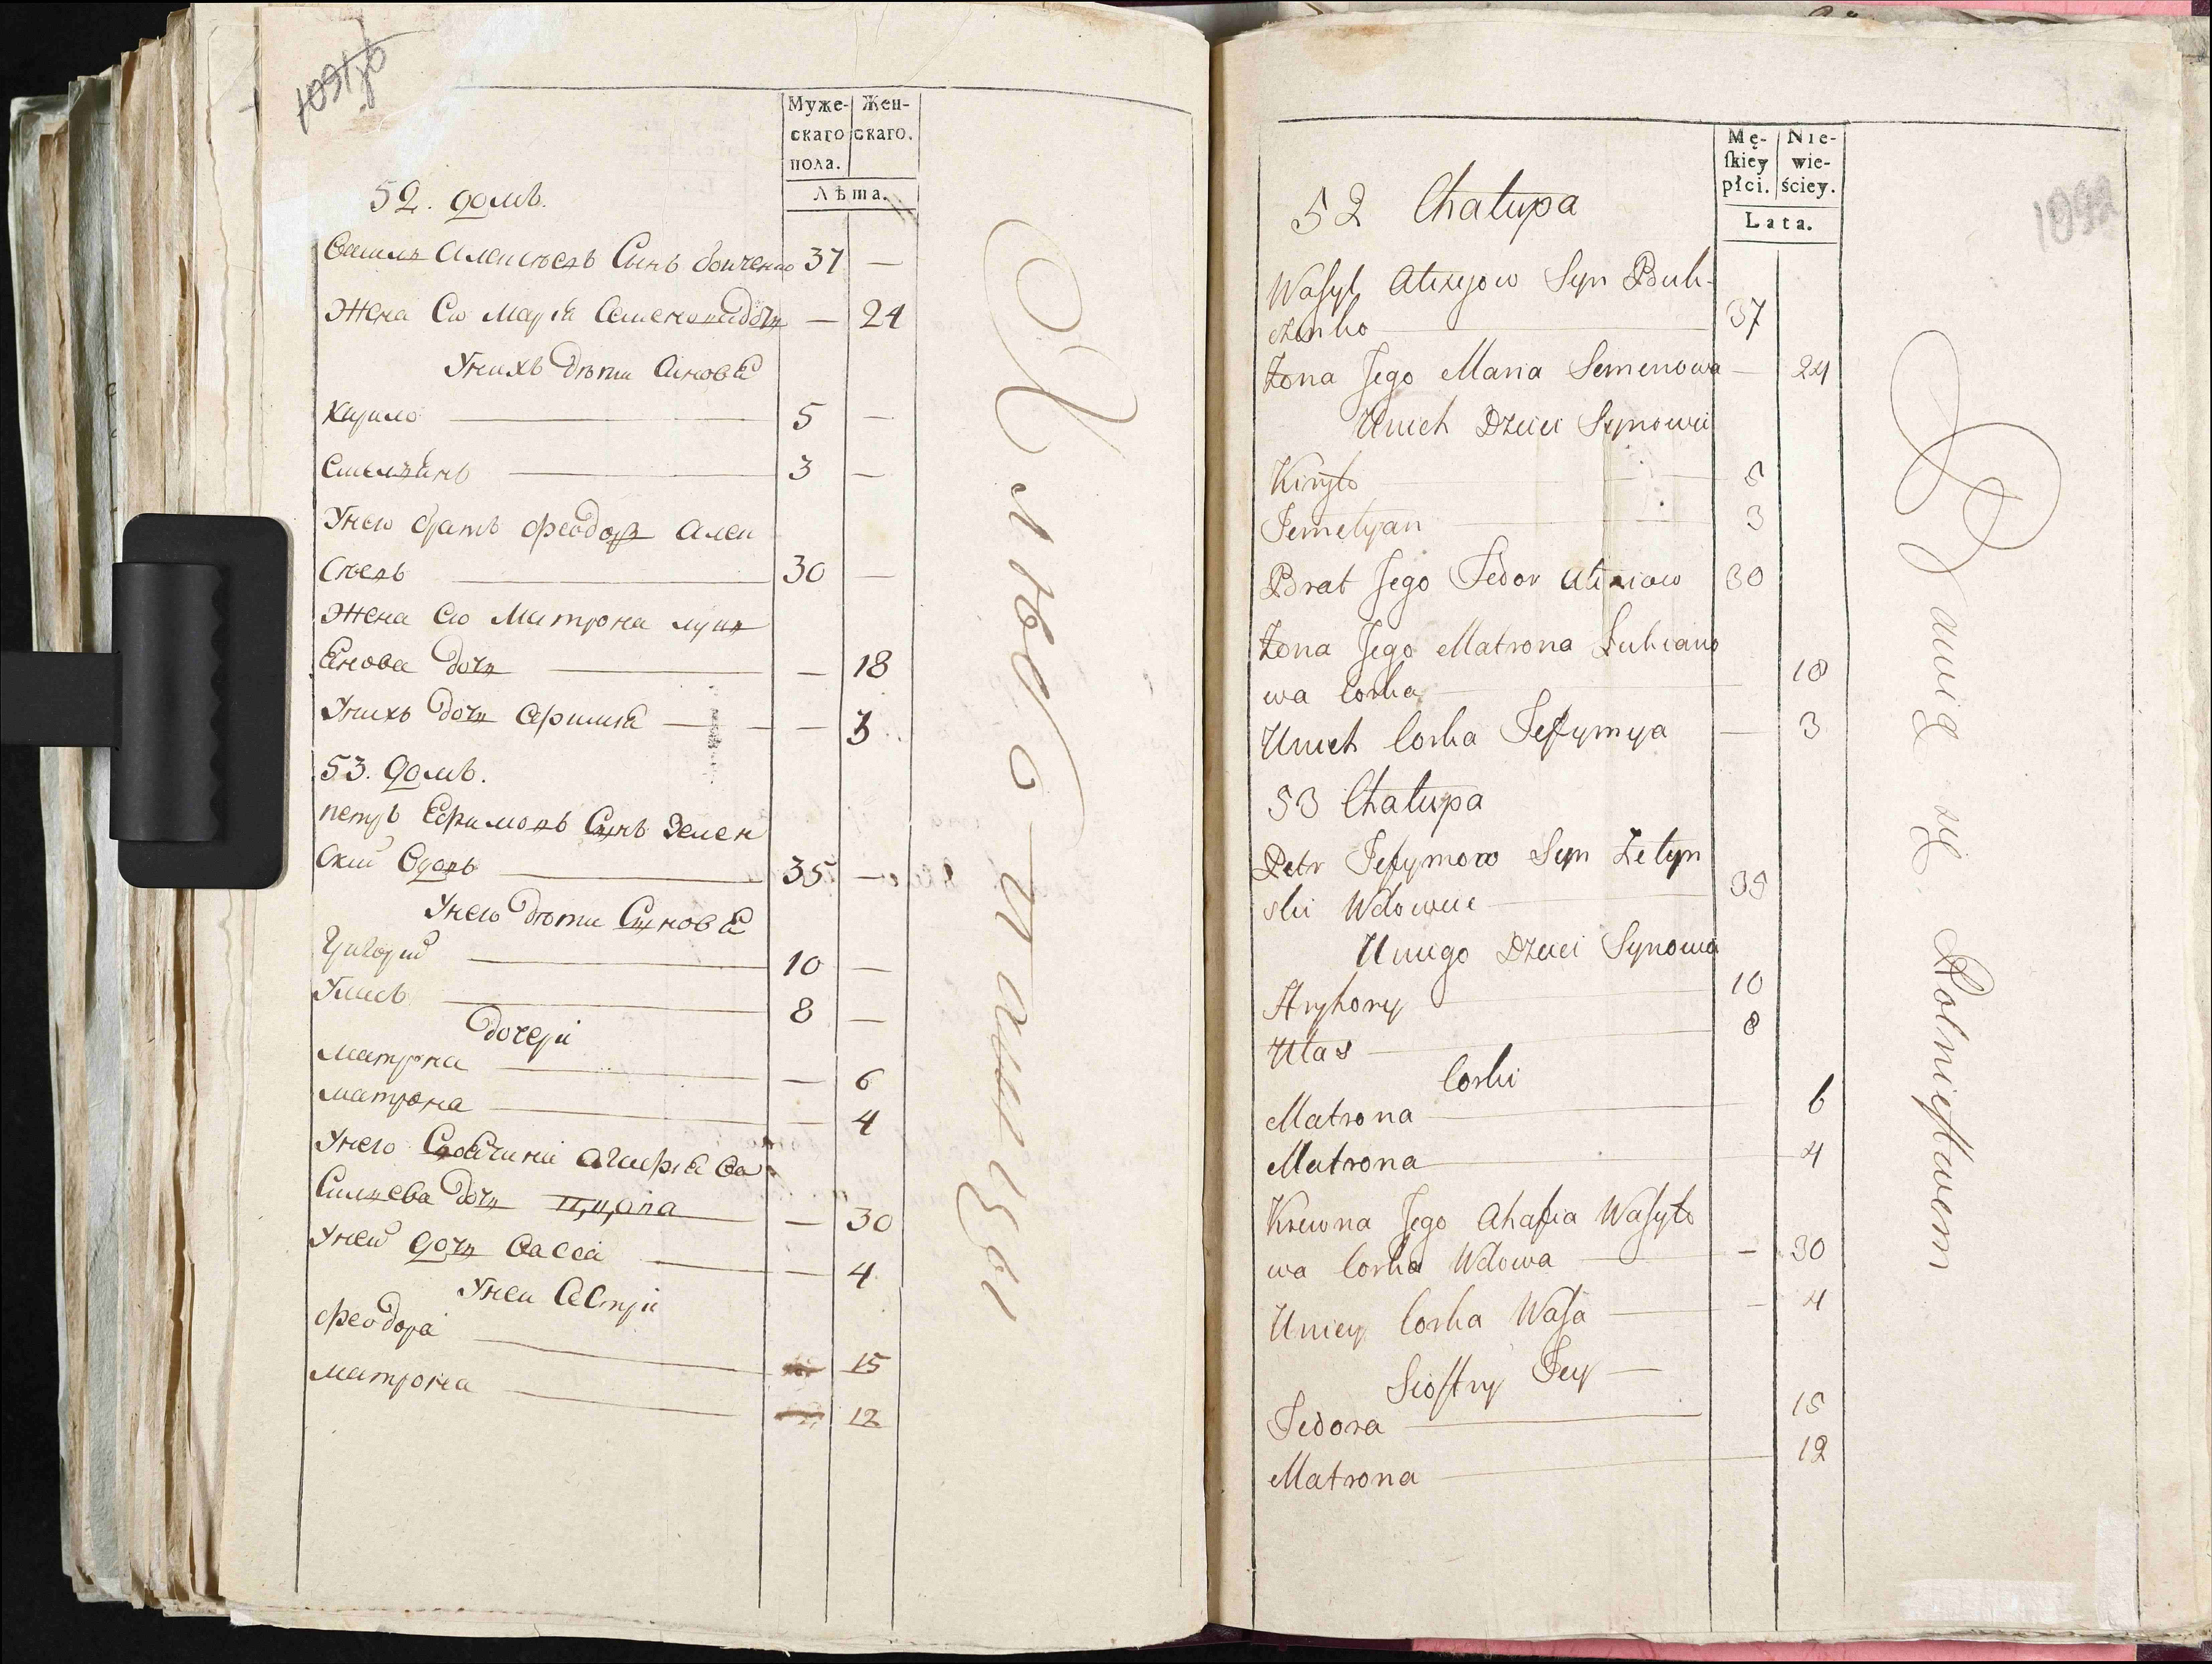 Муже- Жен-
скаго скаго.
пола.
Лѣта.
52. домъ.
Василь Алексѣевъ Сынъ 37 —
Жена Его Марія Семенова дочь — 24
У нихъ дѣти Синовя
Кирило 5 —
Емельянъ 3 —
У него братъ Феодоръ Алек
Сѣевъ 30 —
Жена Его Матрона Лукь
Янова дочь — 18
У нихъ дочь — 3
53. домъ.
Петръ Ефимовъ Сынъ Зелен
Ский Вдовъ 35 —
У него дѣти Сыновя
Григорий 10 —
Улась 8 —
Дочери
Матрона — 6
Матрона — 4
У него Агафія Ва
Сильева дочь — 30
У ней дочь Васса — 4
У ней Сестри
Феодора 15
Матрона 12
Хлѣбопашцы
Mę- Nie-
skiey wie-
płci. ściey.
Lata.
52 Chałupa
Wasyl Alexyow Syn Buh-
czenko 37
Żona Jego Maria Semenowa — 24
Unich Dzieci Synowie
Kiryło 5
Jemelyan 3
Brat Jego Fedor Alexiow 30
Żona Jego Matrona Łukiano
wa Corka 18
Unich Corka Jefymya — 3
53 Chałupa
Petr Jefymow Syn Zelyn
ski Wdowiec 35
Uniego Dzieci Synowie
Hryhory 10
Ułas 8
Corki
Matrona 6
Matrona 4
Krewna Jego Ahafia Wasyło
wa Corka Wdowa — 30
Uniey Corka Wasa — 4
Siostry Jey —
Fedora 15
Matrona 12
Bawią się Rolnictwem